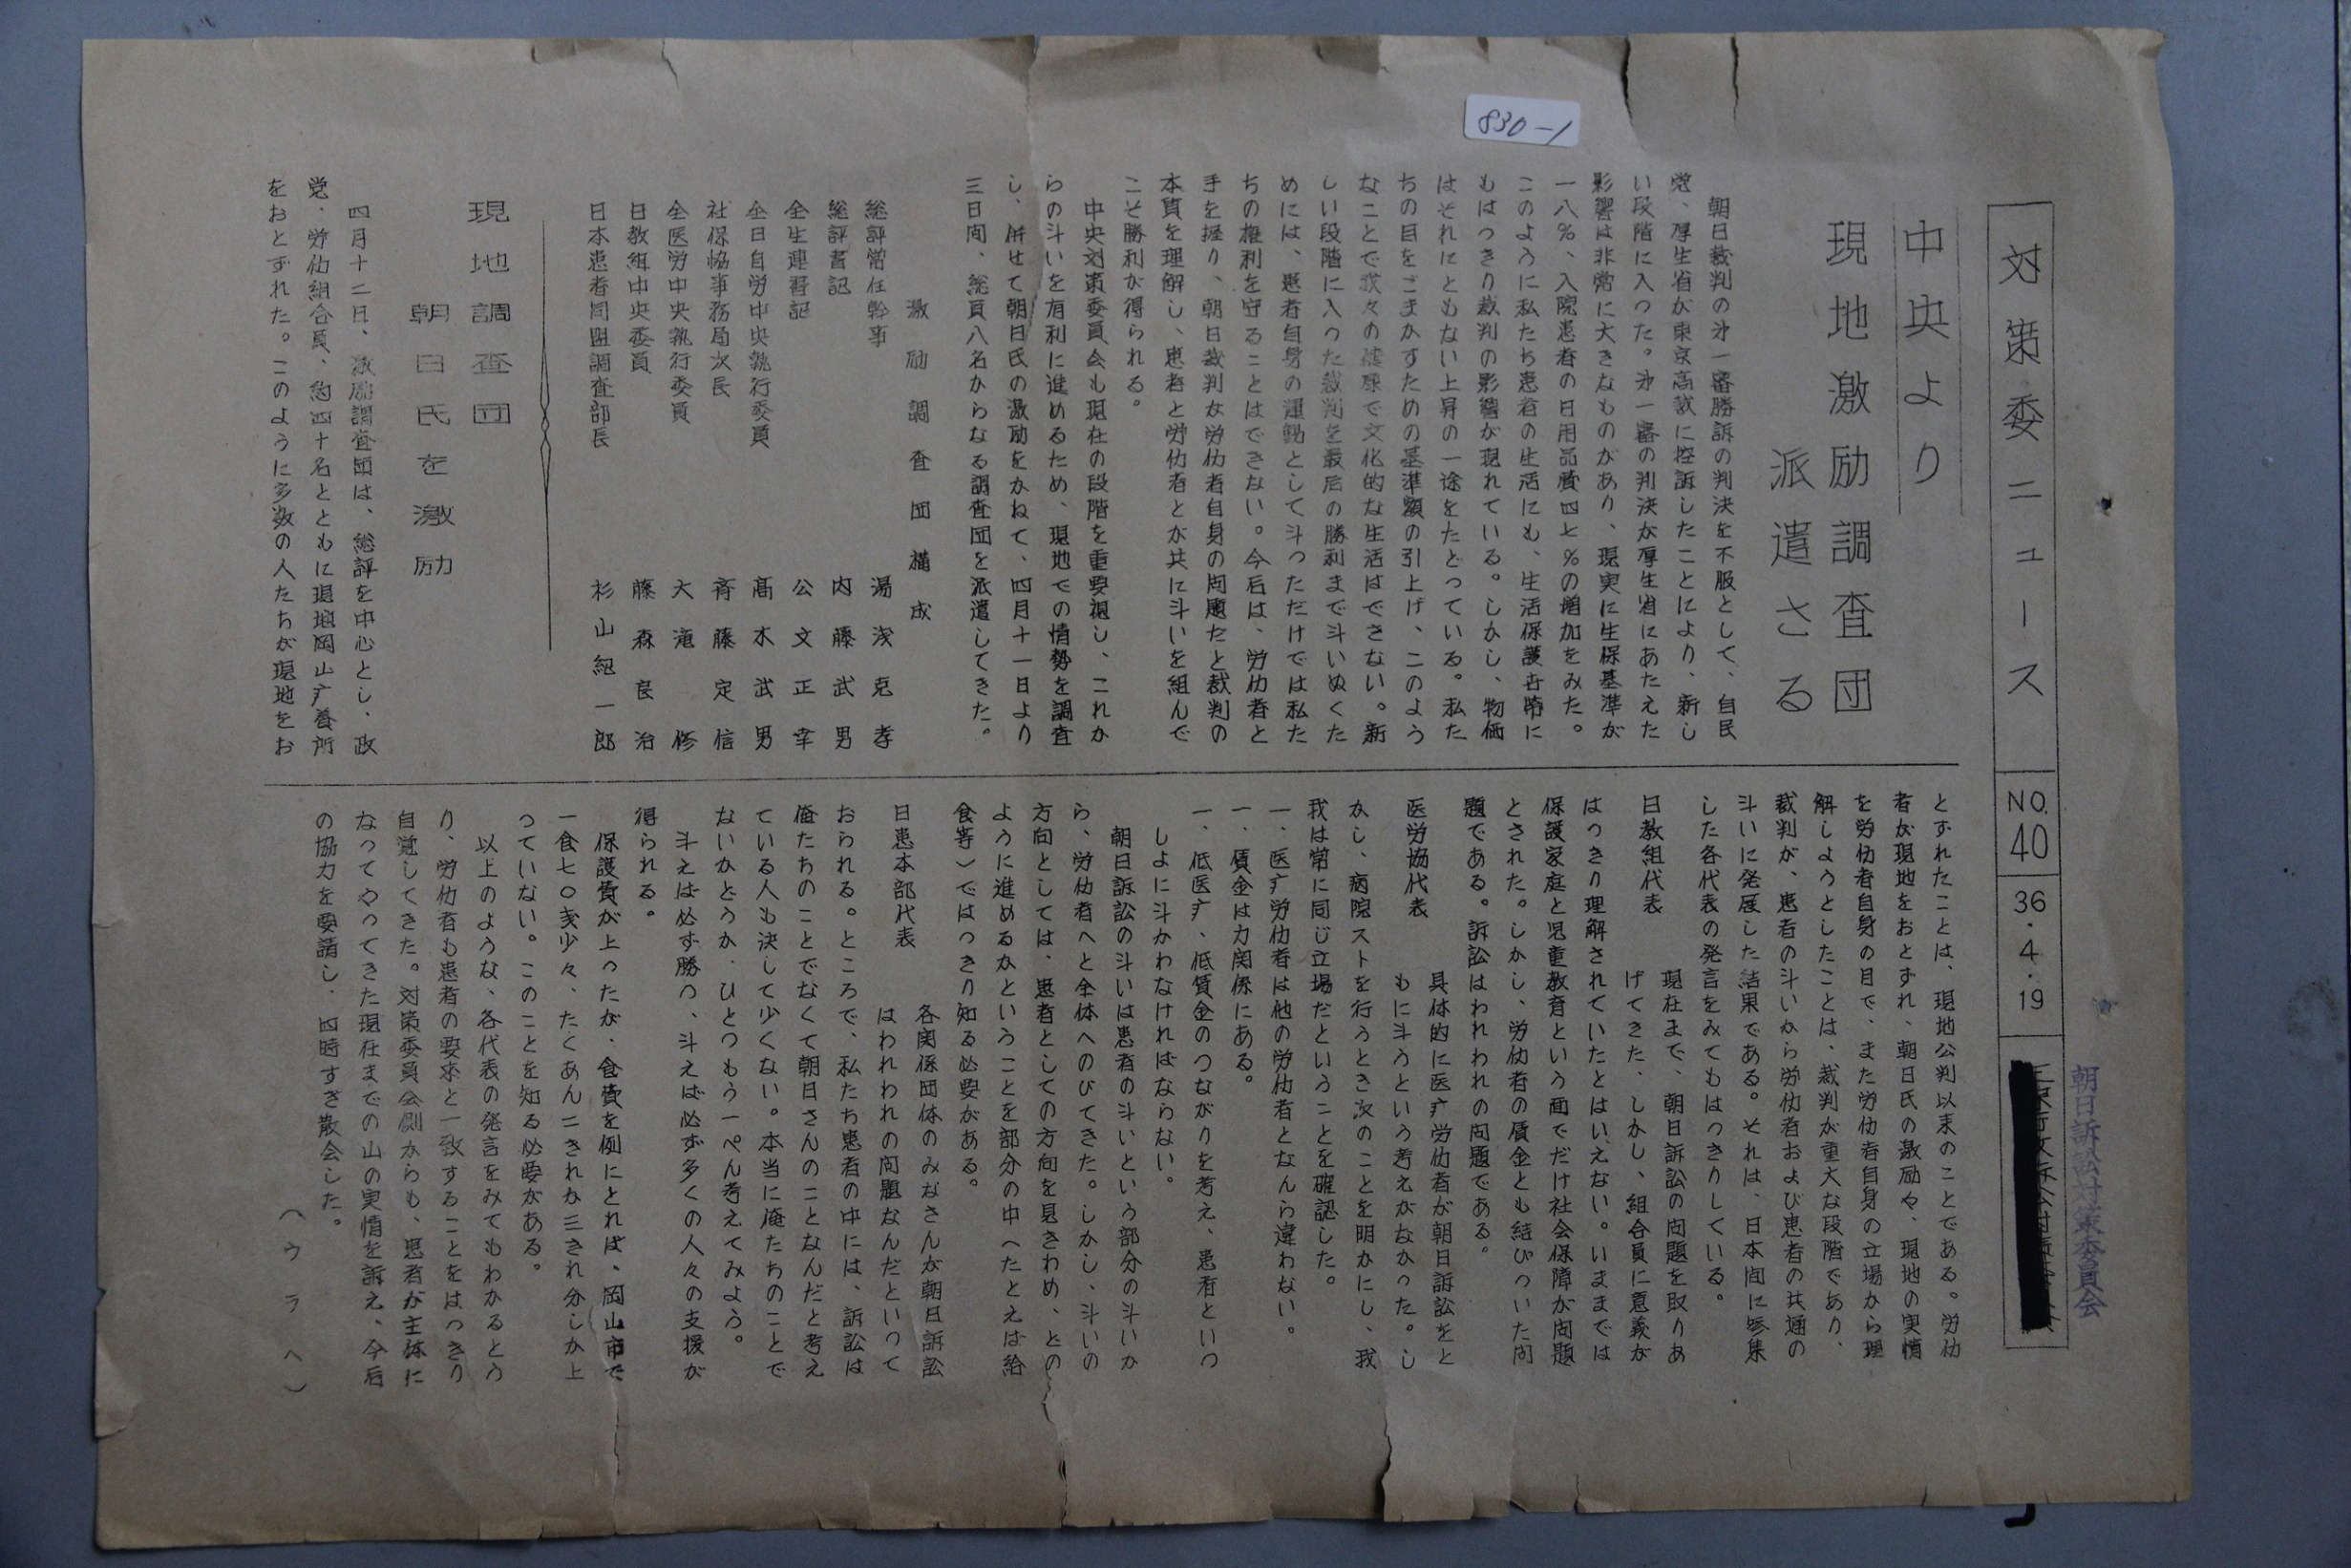 830-1
対策委ニュース
NO.
40
36・4・19
朝日訴訟対策委員会
中央より
現地激励調査団
派遣さる
朝日裁判の㐧一審勝訴の判決を不服として、自民
党、厚生省が東京高裁に控訴したことにより、新し
い段階に入った。㐧一審の判決が厚生省にあたえた
影響は非常に大きなものがあり、現実に生保基準が
一八％、入院患者の日用品費四七％の増加をみた。
このように私たち患者の生活にも、生活保護
もはっきり裁判の影響が現れている。しかし、物価
はそれにともない上昇の一途をたどっている。私た
ちの目をごまかすための基準額の引上げ、このよう
なことで我々の健康で文化的な生活はできない。新
しい段階に入った裁判を最后の勝利まで斗いぬくた
めには、患者自身の運動として斗っただけでは私た
ちの権利を守ることはできない。今后は、労仂者と
手を握り、朝日裁判な労仂者自身の問題だと裁判の
本質を理解し、患者と労仂者とが共に斗いを組んで
こそ勝利が得られる。
中央対策委員会も現在の段階を重要視し、これか
らの斗いを有利に進めるため、現地での情勢を調査
し、併せて朝日氏の激励をかねて、四月十一日より
三日間、総員八名からなる調査団を派遣してきた。
激励調査団構成
総評常任幹事　湯浅克孝
総評書記　内藤武男
全生連書記　公文正幸
全日自労中央執行委員　高木武男
社保協事務局次長　斉藤定信
全医労中央執行委員　大滝修
日教組中央委員　藤森良治
日本患者同盟調査部長　杉山紀一郎
現地調査団
朝日氏を激励
四月十二日、激励調査団は、総評を中心とし、政
党、労仂組合員、約四十名とともに現地岡山疒養所
をおとずれた。このように多数の人たちが現地をお
とずれたことは、現地公判以来のことである。労仂
者が現地をおとずれ、朝日氏の激励や、現地の実情
を労仂者自身の目で、また労仂者自身の立場から理
解しようとしたことは、裁判が重大な段階であり、
裁判が、患者の斗いから労仂者および患者の共通の
斗いに発展した結果である。それは、日本間に参集
した各代表の発言をみてもはっきりしている。
日教組代表　現在まで、朝日訴訟の問題を取りあ
げてきた、しかし、組合員に意義が
はっきり理解されていたとはいえない。いままでは
保護家庭と児童教育という面でだけ社会保障が問題
とされた。しかし、労仂者の賃金とも結びついた問
題である。訴訟はわれわれの問題である。
医労協代表　具体的に医疒労仂者が朝日訴訟をと
もに斗うという考えがなかった。し
かし、病院ストを行うとき次のことを明かにし、我
我は常に同じ立場だということを確認した。
一、医疒労仂者は他の労仂者となんら違わない。
一、賃金は力関係にある。
一、低医疒、低賃金のつながりを考え、患者といっ
しよに斗かわなければならない。
朝日訴訟の斗いは患者の斗いという部分の斗いか
ら、労仂者へと全体へのびてきた。しかし、斗いの
方向としては、患者としての方向を見きわめ、どの
ように進めるかということを部分の中（たとえば給
食等）ではっきり知る必要がある。
日患本部代表　各関係団体のみなさんが朝日訴訟
はわれわれの問題なんだといって
おられる。ところで、私たち患者の中には、訴訟は
俺たちのことでなくて朝日さんのことなんだと考え
ている人も決して少くない。本当に俺たちのことで
ないかどうか、ひとつもう一ぺん考えてみよう。
斗えば必ず勝つ、斗えば必ず多くの人々の支援が
得られる。
保護費が上ったが、食費を例にとれば、岡山市で
一食七〇戋少々、たくあん二きれが三きれ分しか上
っていない。このことを知る必要がある。
以上のような、各代表の発言をみてもわかるとう
り、労仂者も患者の要求と一致することをはっきり
自覚してきた。対策委員会側からも、患者が主体に
なってやってきた現在までの山の実情を訴え、今后
の協力を要請し、四時すぎ散会した。
（ウラへ）